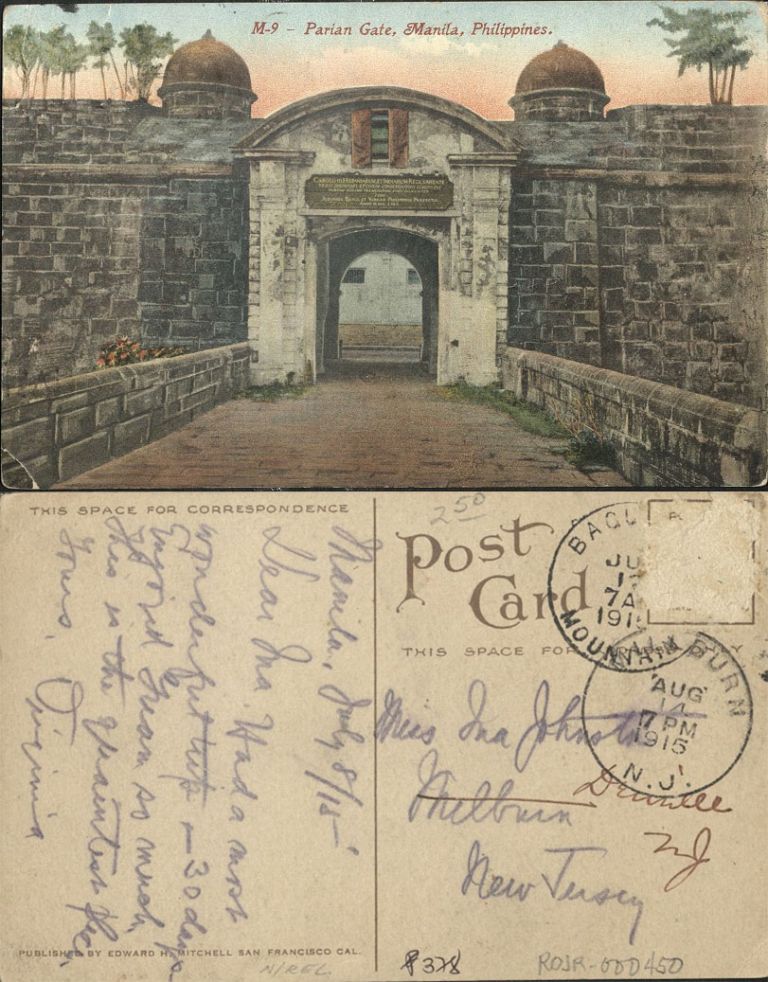 M-9 – Parian Gate, Manila, Philippines.
THIS SPACE FOR CORRESPONDENCE
Manila, July 8/15
Dear Ina Had a most
wonderful trip – 30 days
Enjoyed Guam so much,
this is the quaintest place.
Yours, Virginia
PUBLISHED BY EDWARD H. MITCHELL SAN FRANCISCO CAL.
N/REL
250
Post
Card
THIS SPACE FOR
BAGU
JU
7A
191
MOUNTAIN
BURN
AUG
14
7 PM
1915
N.J.
Miss Ina Johnston
Milburn
NJ
New Jersey
$378
ROJR-000450